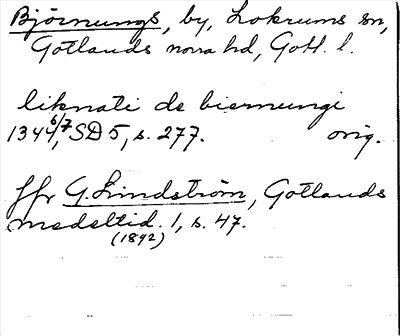 Björnungs, by, Lokrums sn,
Gotlands norra hd, Gotl. l.
liknati de biernungi
1344 6/7, SD 5, s. 277. orig.
Jfr G. Lindström, Gotlands
medeltid. 1, s. 47.
(1892)